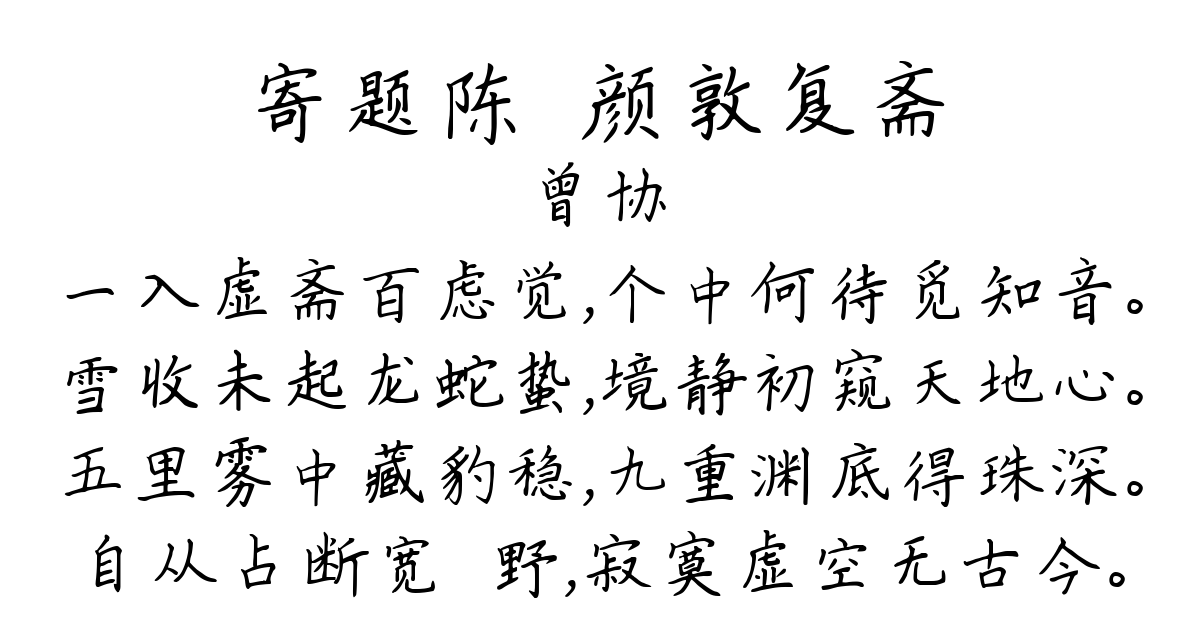 寄题陈 颜敦复斋
曾协
一入虚斋百虑觉,个中何待觅知音。
雪收未起龙蛇蛰,境静初窥天地心。
五里雾中藏豹稳,九重渊底得珠深。
自从占断宽 野,寂寞虚空无古今。